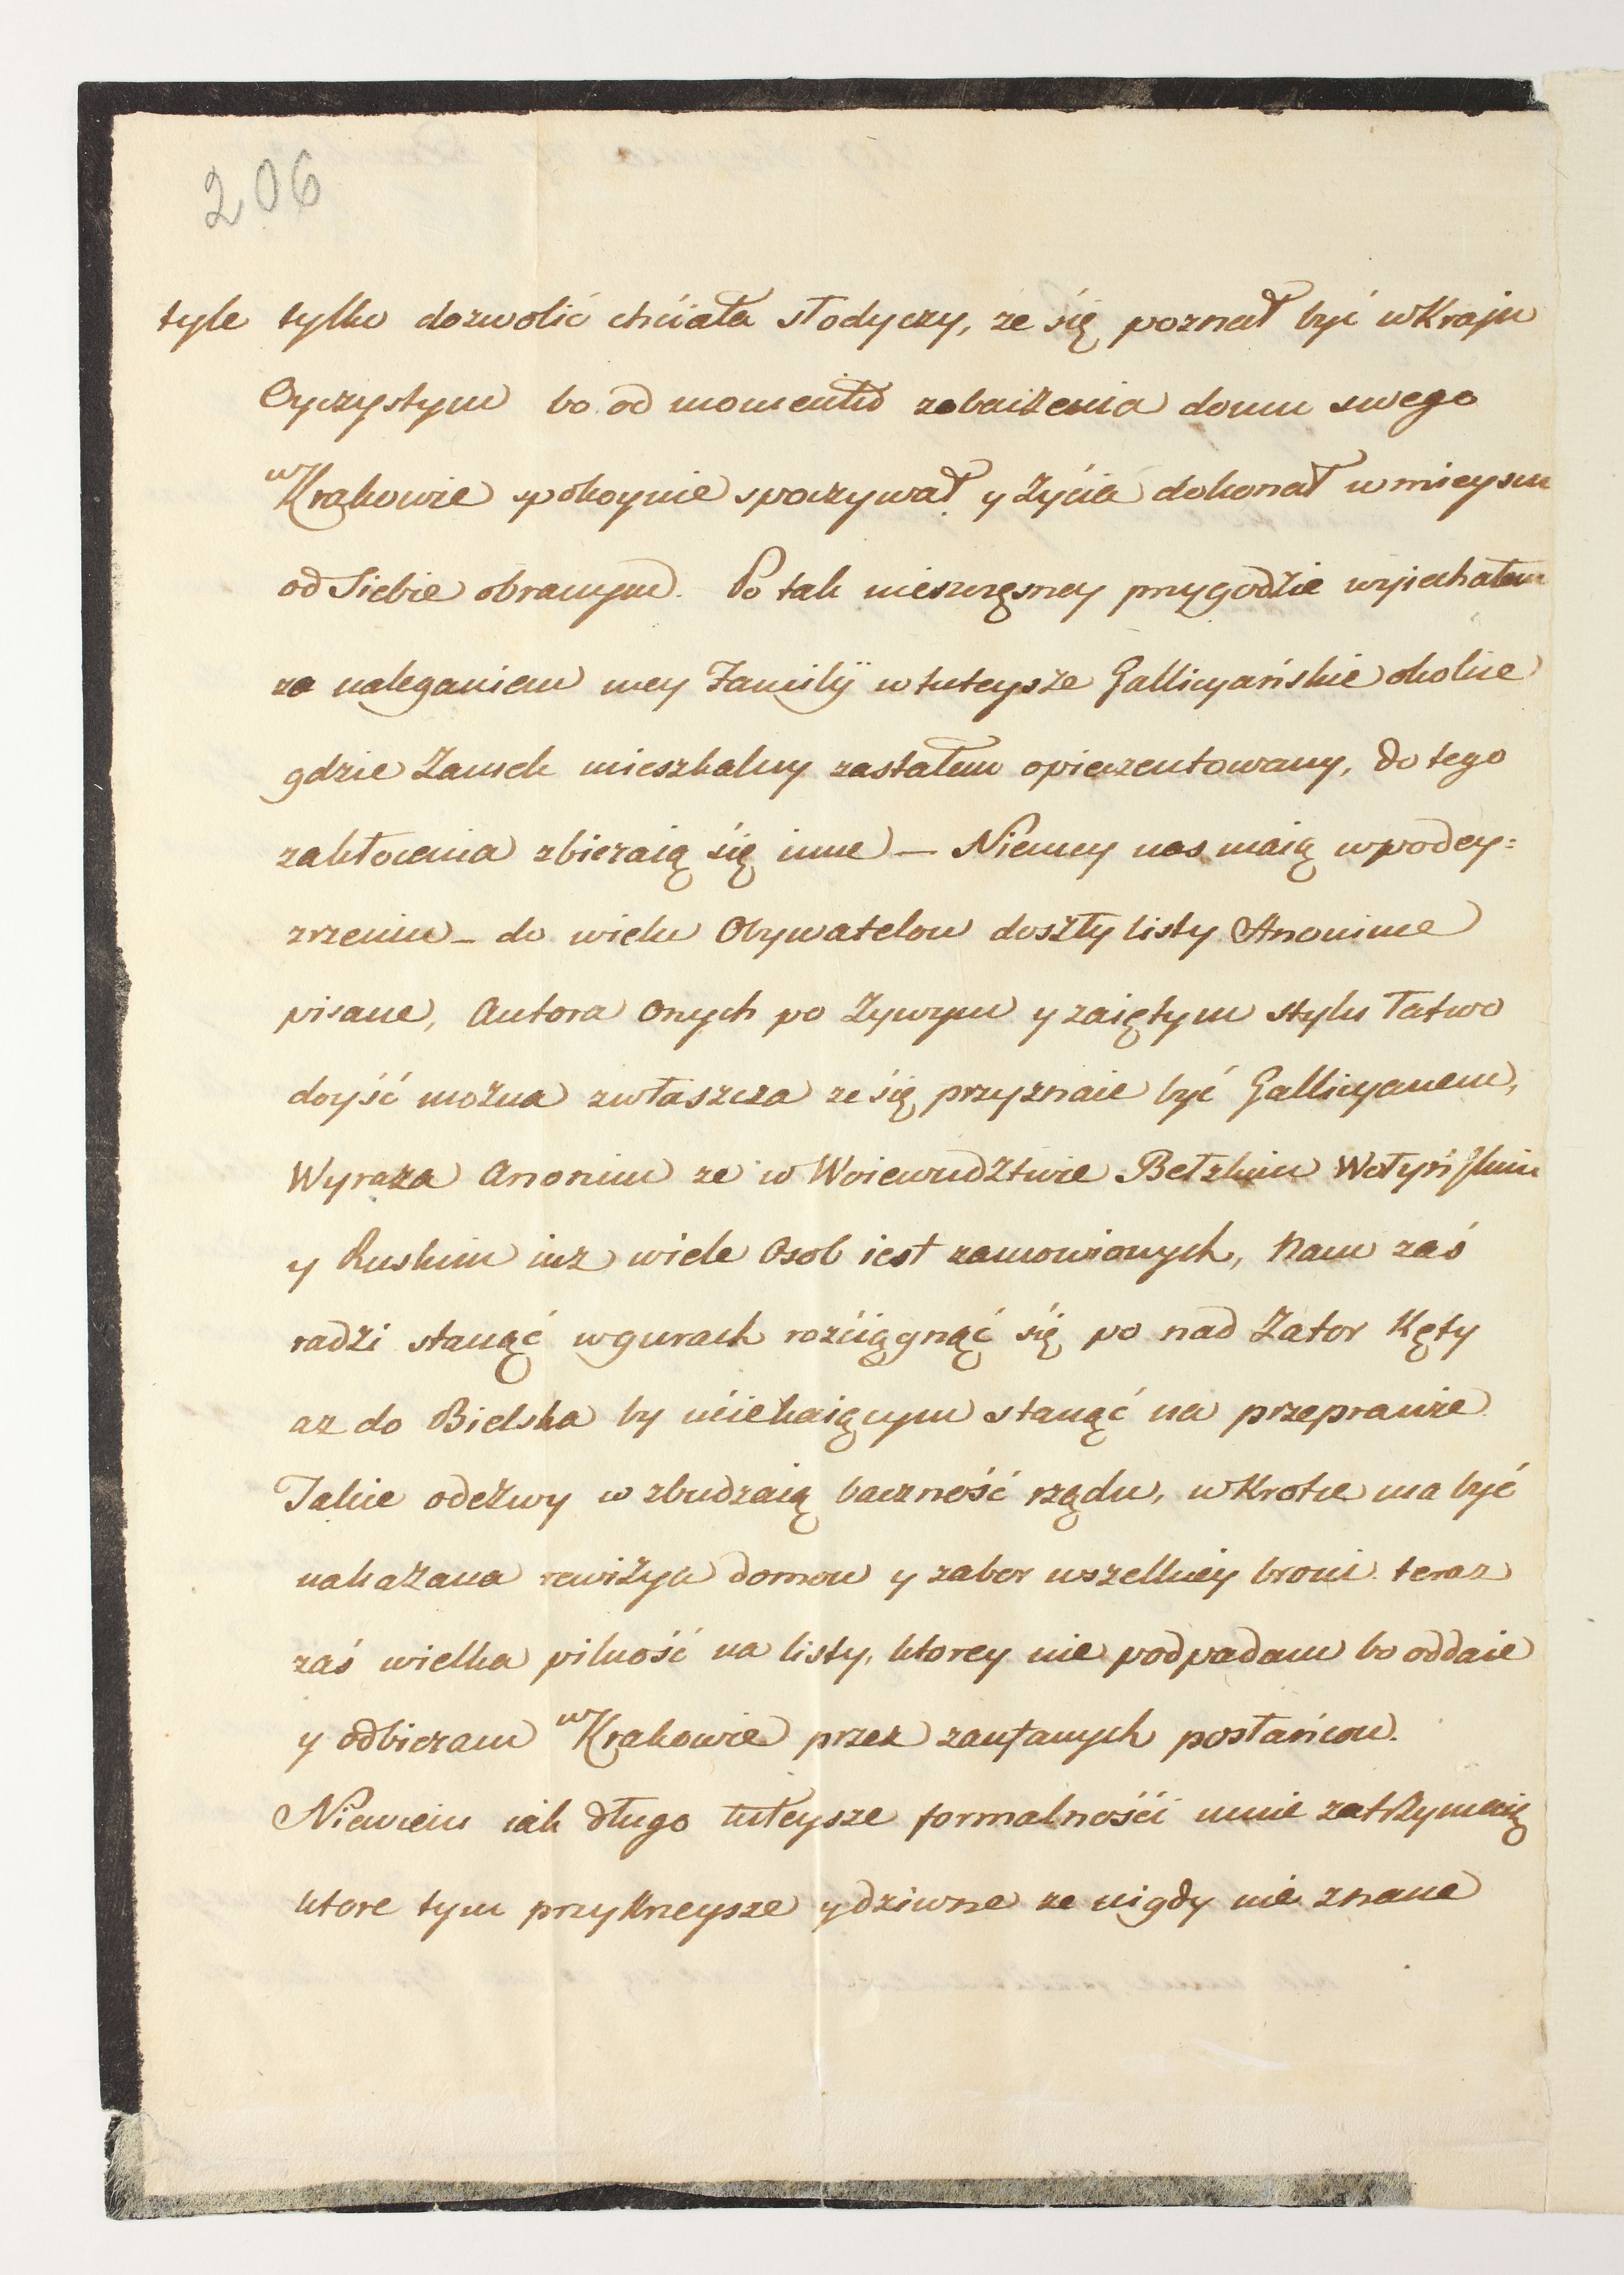 206
tyle tylko dozwolić chćiała słodyczy, ze się poznał być w Kraju
Oyczystym bo od momentu zobaiżenia domu swego
w Krakowie spokoynie spoczywał y Żyćia dokonał w mieyscu
od Siebie obranym. Po tak nieszczęsney przygodzie wyiechałem
za naleganiem mey Familÿ w tuteysze Gallicyańskie okolice
gdzie Zamek mieszkalny zastałem opieczentowany, do tego
zakłocenia zbieraią się inne — Niemcy nas maią w podey=
zrzeniu — do wielu Obywatelow doszły listy Anonime
pisane, Autora Onych po Żywym y zaiętym stylu łatwo
doyść można zwłaszcza ze się przyznaie być Gallicyanem,
Wyraża Anonim ze w Woiewudztwie Bełzkim Wołyńskim
y Ruskim iuz wiele Osob iest zamowionych, Nam zaś
radzi stanąć w gurach rozćiągnąć się po nad Zator Kęty
az do Bielska by ućiekaiącym stanąć na przeprawie
Takie odezwy wzbudzaią baczność rządu, w Krotce ma być
nakazana rewizya domow y zabor wszelkiey broni teraz
zaś wielka pilność na listy, ktorey nie podpadam bo oddaie
y odbieram w Krakowie przez zaufanych posłańcow.
Niewiem iak długo tuteysze formalnośći mnie zatrzymaią
ktore tym przykrzeysze y dziwne ze nigdy nie znane